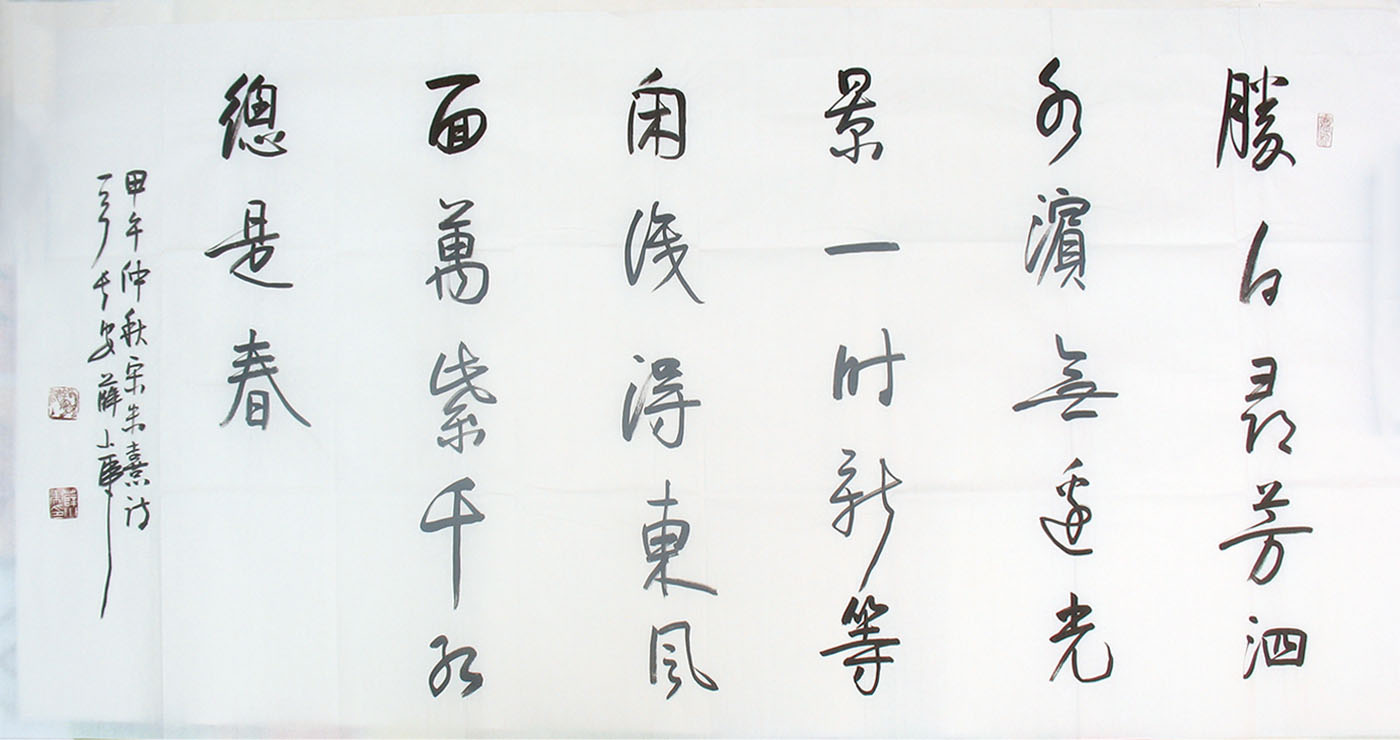 勝日尋芳泗
水濱無邊光
景一时新等
閑識得東風
面萬紫千紅
總是春
甲午仲秋宋朱熹詩
一首長安薛